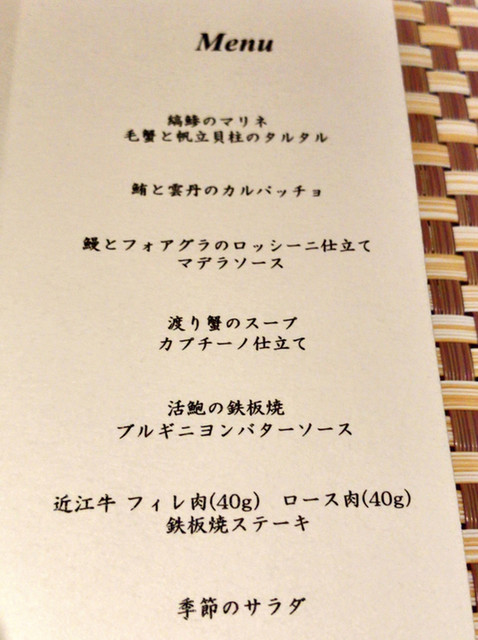 Menu
縞鯵のマリネ
毛蟹と帆立貝柱のタルタル
鮪と雲丹のカルパッチョ
鰻とフォアグラのロッシーニ仕立て
マデラソース
渡り蟹のスープ
カプチーノ仕立て
活鮑の鉄板焼
ブルギニヨンバターソース
近江牛 フィレ肉(40g) ロース肉(40g)
鉄板焼ステーキ
季節のサラダ